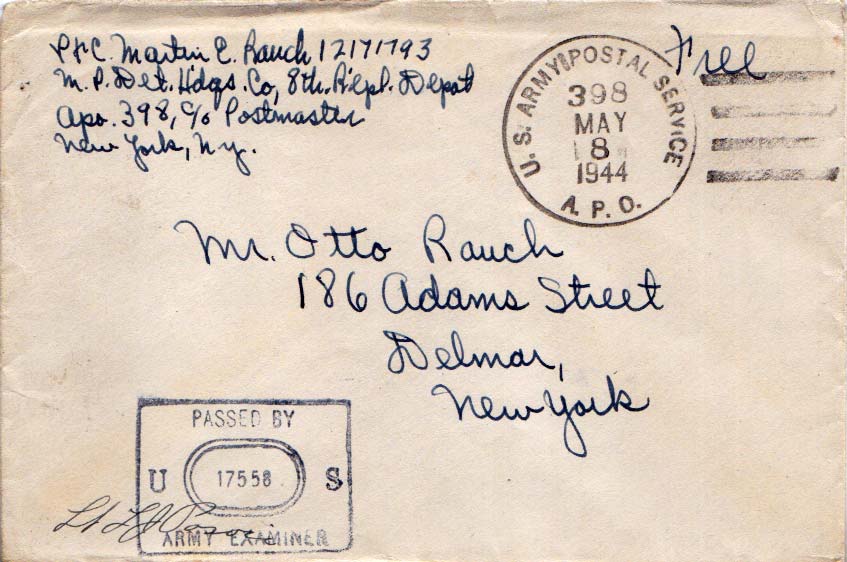 Pfc. Martin E. Rauch 12171793
M.P. Det. Hdqs. Co, 8th. Repl. Depot
Apo. 398, c/o Postmaster
New York, N.y.
U.S. ARMY POSTAL SERVICE
398
MAY
8
1944
A.P.O.
Free
Mr. Otto Rauch
186 Adams Street
Delmar,
New York
PASSED BY
U 17558 S
ARMY EXAMINER
Lt